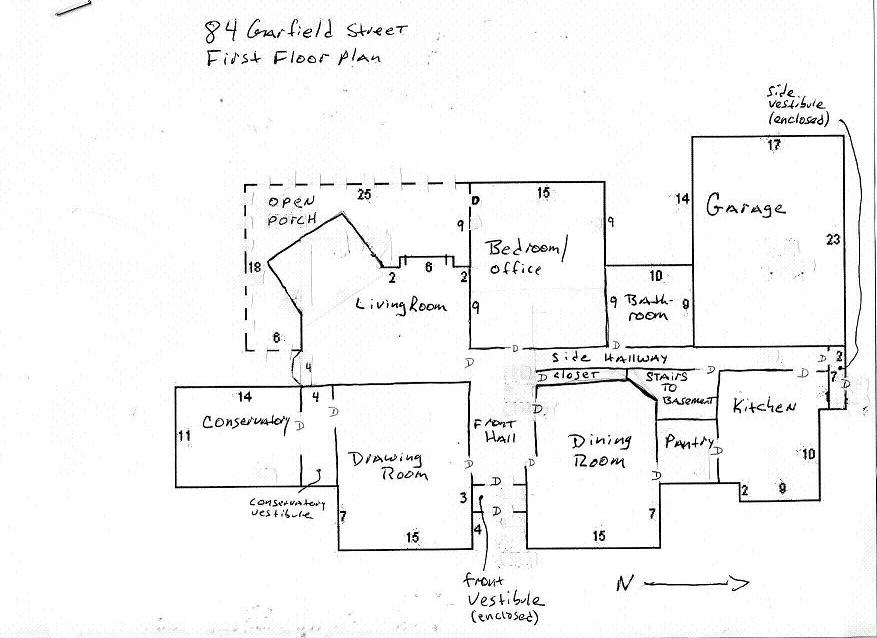 84 Garfield Street
First Floor Plan
side
vestibule
(enclosed)
17
14
Garage
23
OPEN
PORCH
25
D
15
9
9
Bedroom/
office
18
2
6
2
Living Room
9
9
10
Bath-
room
9
6
4
D
D
D
Side HALLWAY
D
2
closet
D
STAIRS
TO
Basement
D
D
7
D
14
4
Conservatory
D
D
11
Front
HALL
D
Dining
Room
Pantry
D
Kitchen
10
Drawing
Room
D
D
D
Conservatory
vestibule
D
3
D
4
7
15
7
15
2
9
front
vestibule
(enclosed)
N